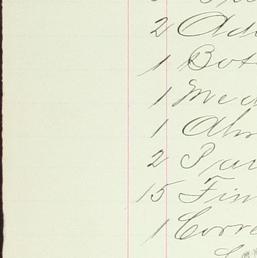 2 Ad
1 Bot
1 Med
1 Alm
2 Pai
15 Fin
1 Corre